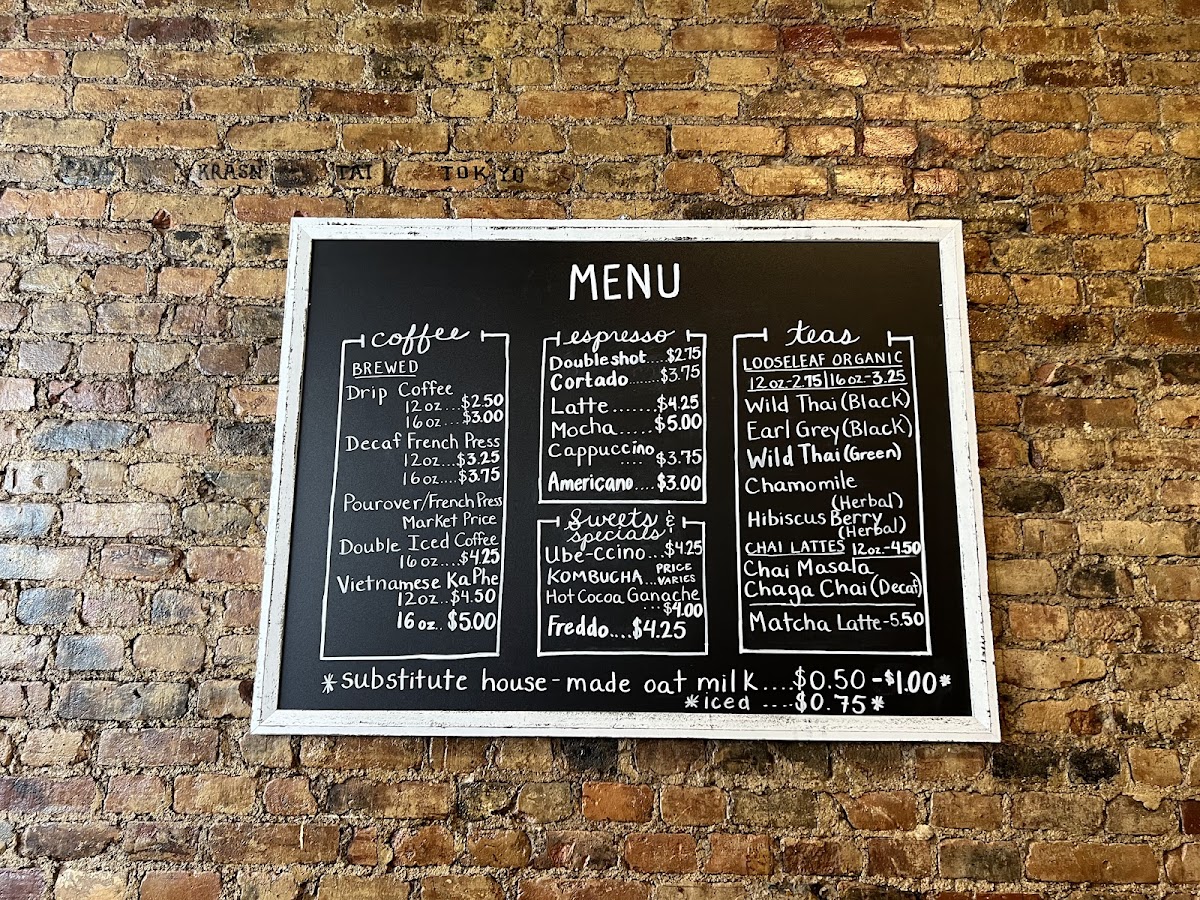 KRASN TAI TOKYO
MENU
coffee
BREWED
Drip Coffee
12 oz...$2.50
16 oz....$3.00
Decaf French Press
12 oz...$3.25
16 oz....$3.75
Pourover/French Press
Market Price
Double Iced Coffee
16 oz....$4.25
Vietnamese Ka Phe
12 oz..$4.50
16 oz.. $5.00
espresso
Double shot....$2.75
Cortado........$3.75
Latte.......$4.25
Mocha.....$5.00
Cappuccino
.... $3.75
Americano....$3.00
Sweets &
specials
Ube-ccino...$4.25
KOMBUCHA...PRICE
VARIES
Hot Cocoa Ganache
...$4.00
Freddo....$4.25
teas
LOOSELEAF ORGANIC
12 oz-2.75||16 oz-3.25
Wild Thai (Black)
Earl Grey (Black)
Wild Thai (Green)
Chamomile
(Herbal)
Hibiscus Berry
(Herbal)
CHAI LATTES 12oz-4.50
Chai Masala
Chaga Chai (Decaf)
Matcha Latte-5.50
*substitute house-made oat milk....$0.50-$1.00*
*iced ....$0.75*